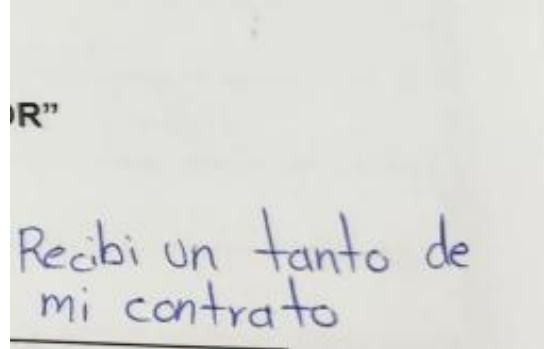 R”
Recibi un tanto de
mi contrato